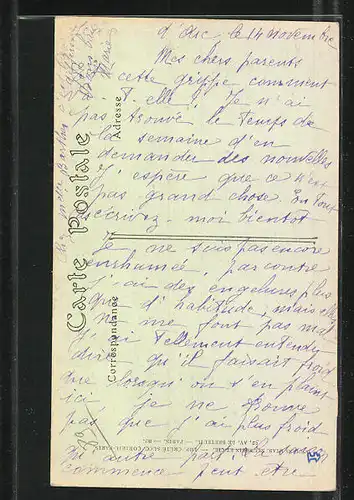 d'Arc, le 14 novembre
Mes chers parents
cette grippe comment
va-t-elle ? Je n'ai
pas trouvé le temps de
la semaine d'en
demander des nouvelles
J'espère que ce n'est
pas grand chose. En tout
écrivez-moi bientôt
Je ne suis pas encore
enrhumée, par contre
j'ai des engelures plus
que d'habitude, mais elles
ne me font pas mal
J'ai tellement entendu
dire qu'il faisait froid
que lorsqu'on est en plein
ici je ne trouve
pas que j'ai plus froid
qu'autre part
commence peut être
Carte postale
Correspondance
Adresse
Marie